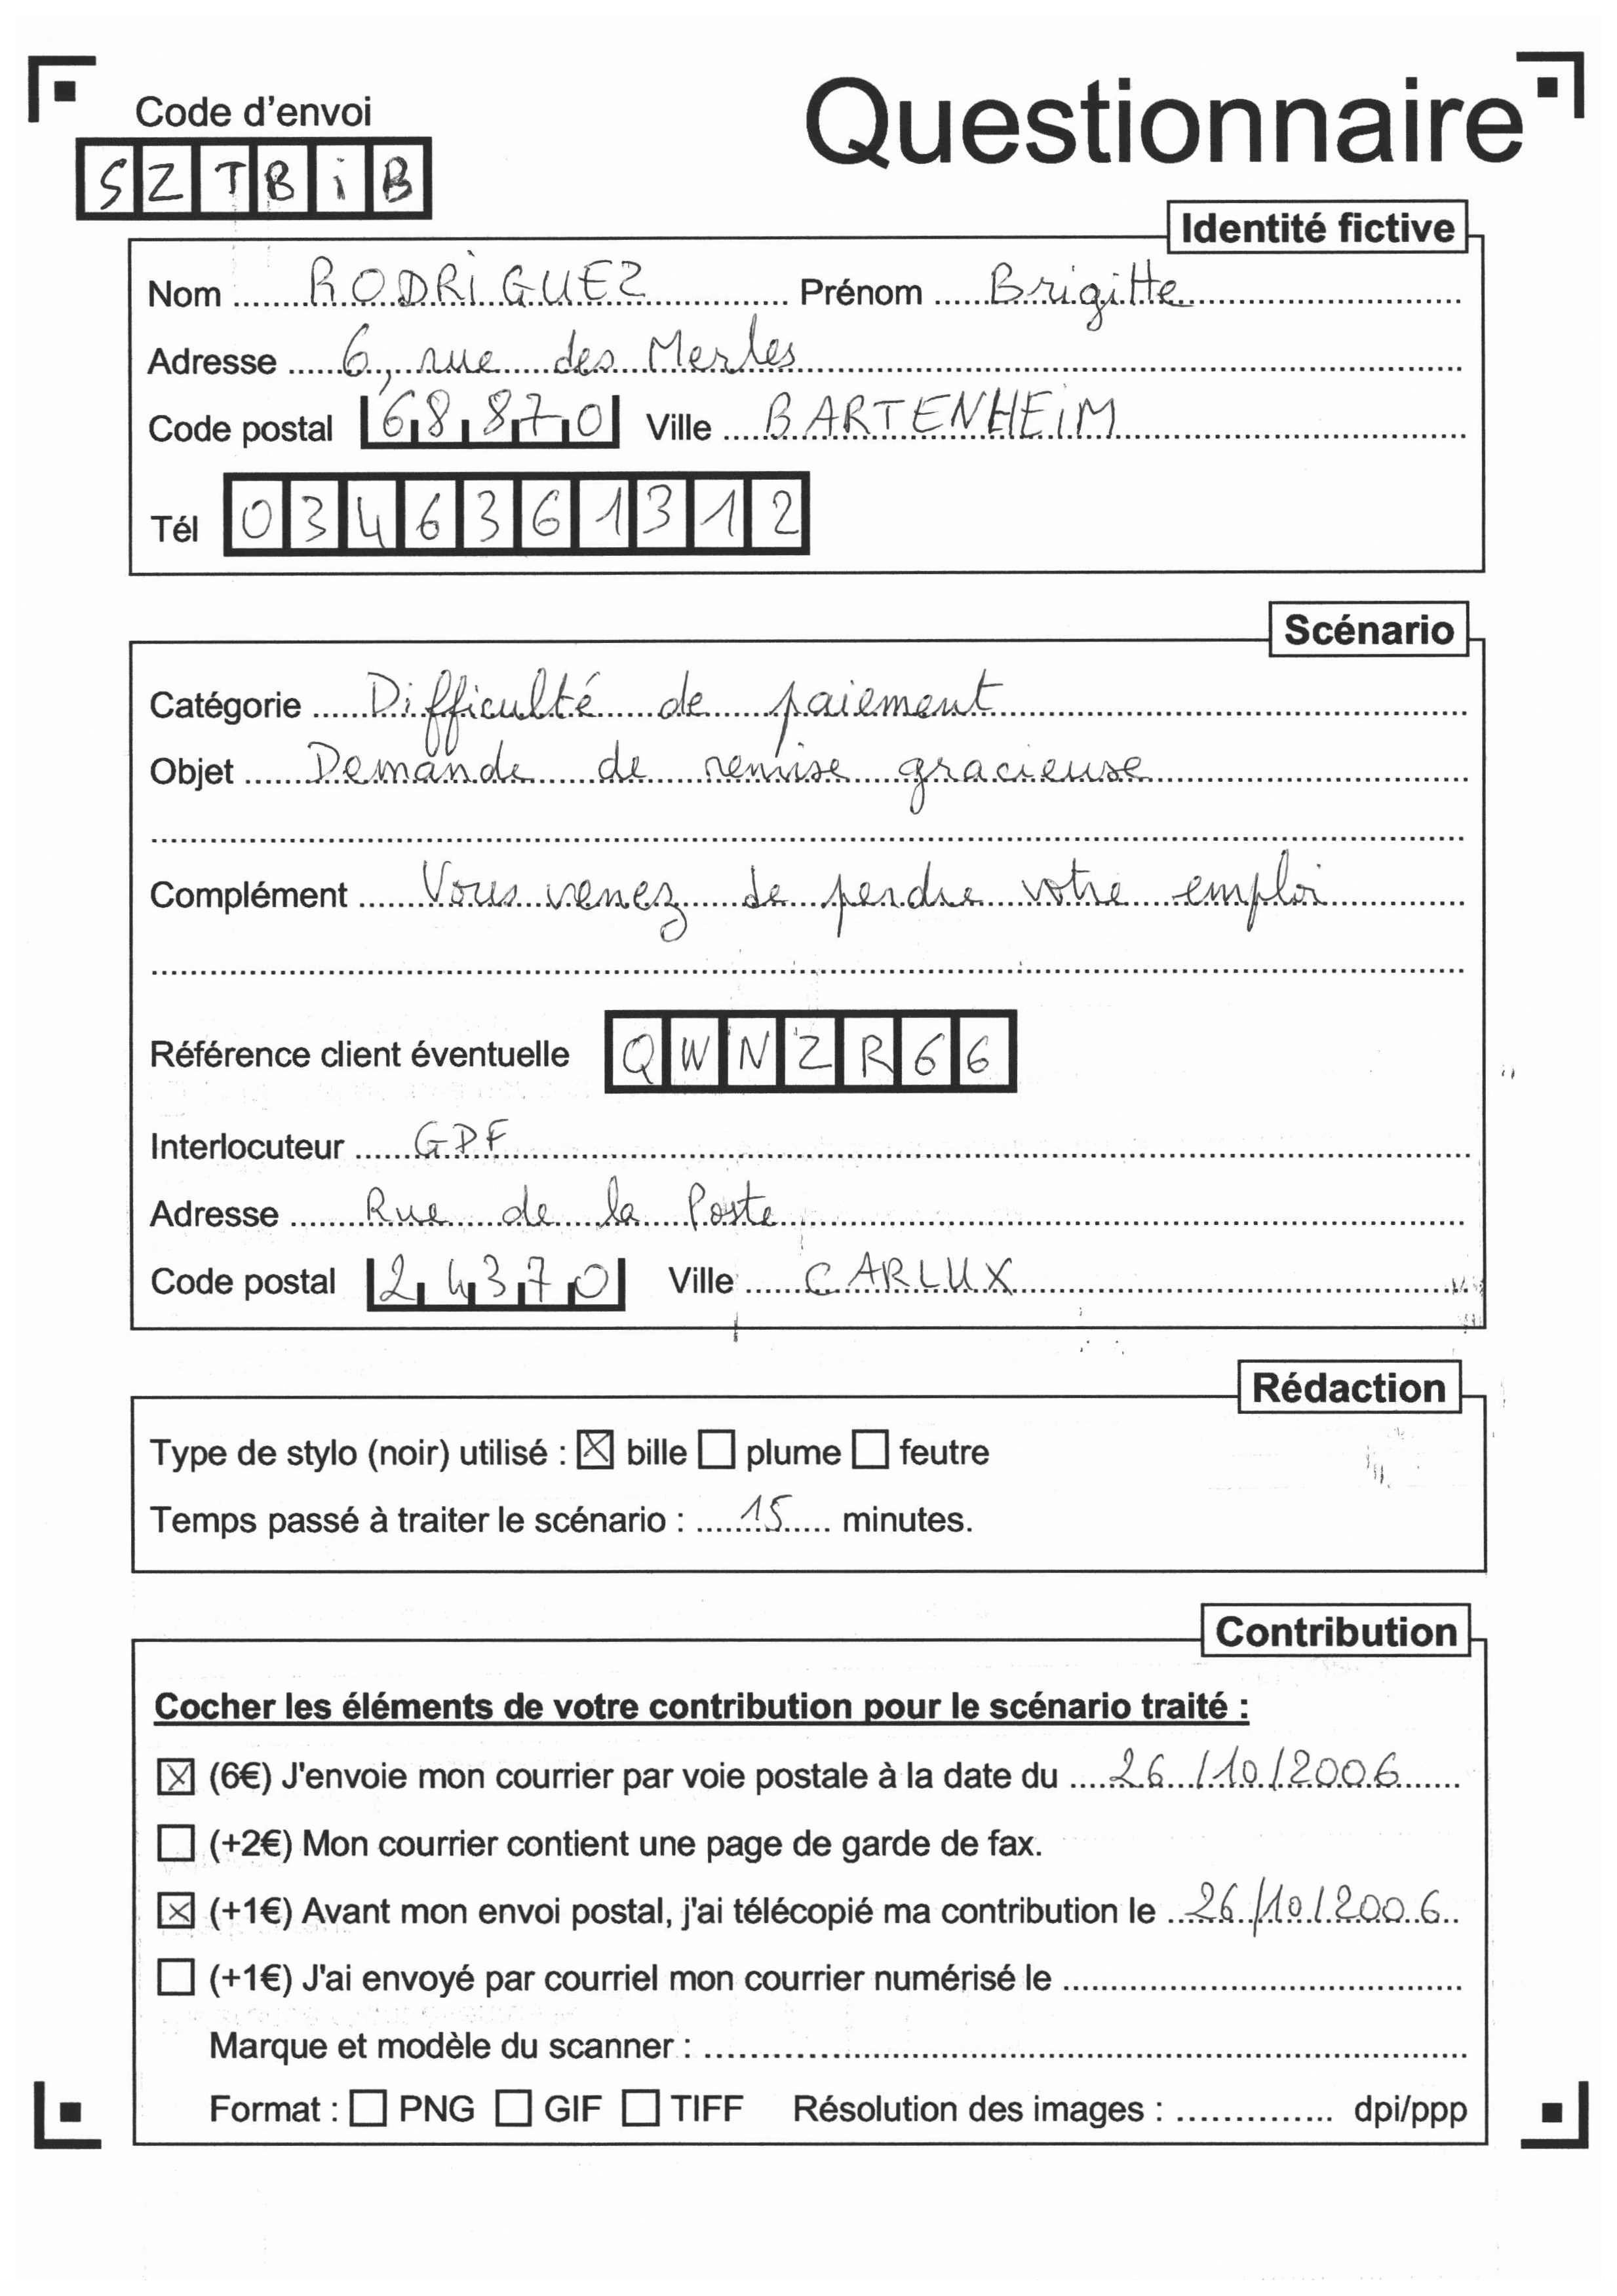 Questionnaire
Code d'envoi
SZTBiB
Identité fictive
Nom RODRiGUEZ Prénom Brigitte
Adresse 6, rue des Merles
Code postal 68870 Ville BARTENHEiM
Tél 0346361312
Scénario
Catégorie Difficulté de paiement
Objet Demande de remise gracieuse
Complément Vous venez de perdre votre emploi
Référence client éventuelle QWNZR66
Interlocuteur GDF
Adresse Rue de la Poste
Code postal 24370 Ville CARLUX
Rédaction
Type de stylo (noir) utilisé : ☒ bille ☐ plume ☐ feutre
Temps passé à traiter le scénario : 15 minutes.
Contribution
Cocher les éléments de votre contribution pour le scénario traité :
☒ (6€) J'envoie mon courrier par voie postale à la date du 26/10/2006
☐ (+2€) Mon courrier contient une page de garde de fax.
☒ (+1€) Avant mon envoi postal, j'ai télécopié ma contribution le 26/10/2006
☐ (+1€) J'ai envoyé par courriel mon courrier numérisé le
Marque et modèle du scanner :
Format : ☐ PNG ☐ GIF ☐ TIFF Résolution des images : dpi/ppp